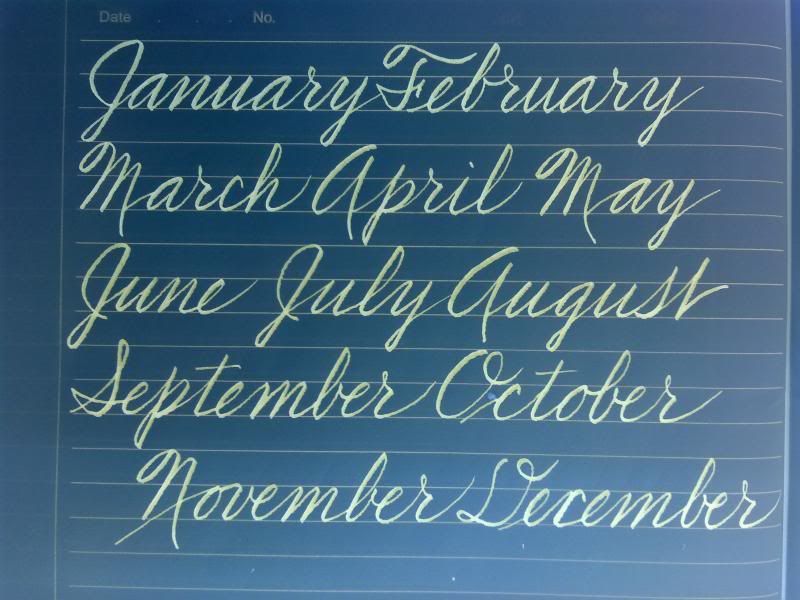 Date No.
January February
March April May
June July August
September October
November December